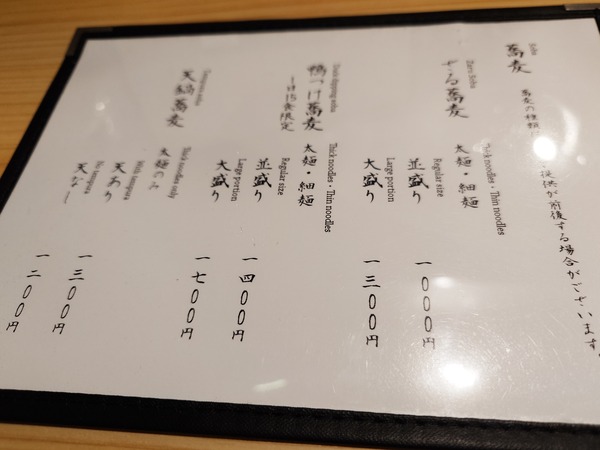 Soba
蕎麦
蕎麦の種類
提供が前後する場合がございます。
Zaru Soba
ざる蕎麦
Thick noodles・Thin noodles
太麺・細麺
Regular size
並盛り 一〇〇〇円
Large portion
大盛り 一三〇〇円
Duck dipping soba
鴨つけ蕎麦
一日15食限定
Thick noodles・Thin noodles
太麺・細麺
Regular size
並盛り 一四〇〇円
Large portion
大盛り 一七〇〇円
soba
天鍋蕎麦
Thick noodles only
太麺のみ
With tempura
天あり 一三〇〇円
No tempura
天なし 一二〇〇円